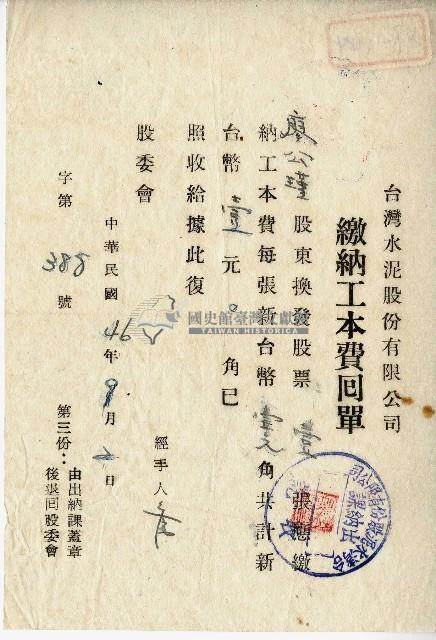 台灣水泥股份有限公司
繳納工本費回單
廖公瑾股東換發股票壹張應繳
納工本費每張新台幣壹元角共計新
台幣壹元0角已
照收給據此復
股委會
中華民國46年9月 日
字第388號
經手人
第三份：由出納課蓋章
後退回股委會
國史館臺灣文獻館
TAIWAN HISTORICA
台灣水泥股份有限公司
出納課